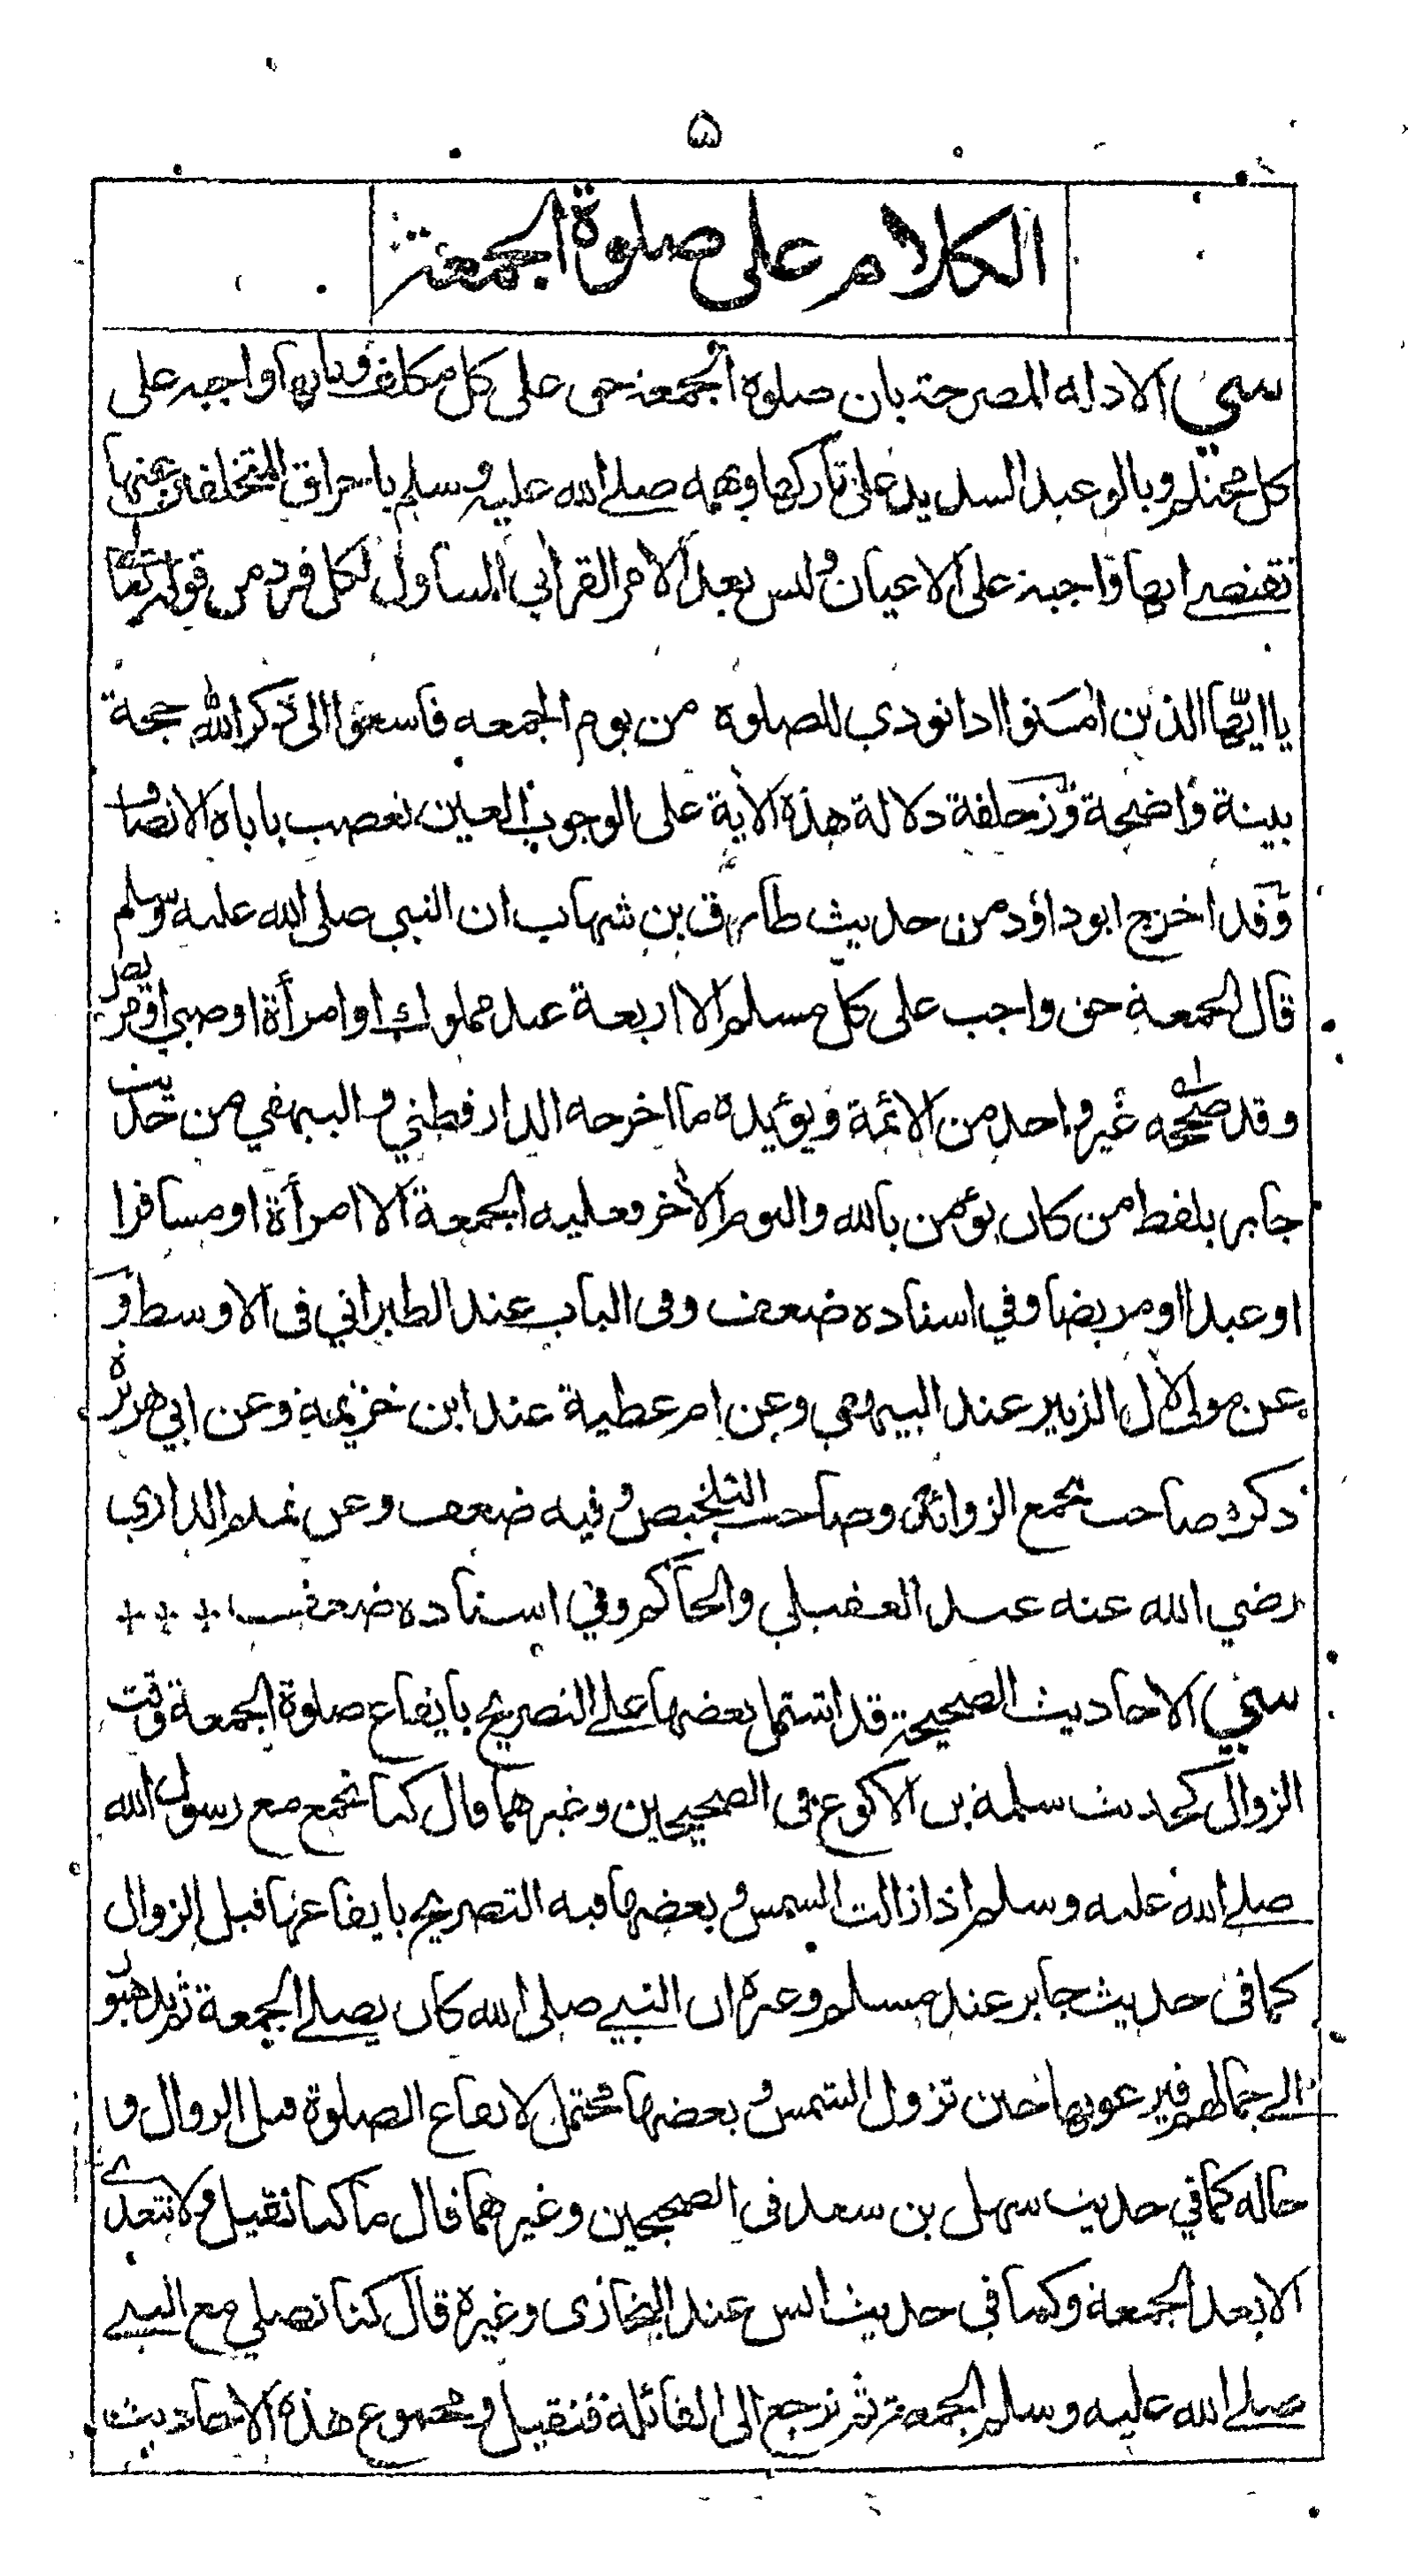 ۵
الكلام على صلوة الجمعة
شيء الادلة المصرحة بان صلوة الجمعة حق على كل مكلف وبانها واجبة على
كل محتلم وبالوعيد الشديد على تاركها وهمه صلے الله عليه وسلم باحراق المتخلفين عنها
تقتضے انها واجبة على الاعيان وليس بعد الامر القراني المتناول لكل فرد من قوله تعالے
يا ايّها الذين اٰمنوا اذا نودي للصلوة من يوم الجمعه فاسعوا الى ذكر الله حجة
بينة واضحة و دلالة هذه الاية على الوجوب العين تعصب ياباه الانصاف
وقد اخرج ابو داؤد من حديث طارق بن شهاب ان النبي صلى الله عليه وسلم
قال الجمعة حق واجب على كل مسلم الا اربعة عبد مملوك او امرأة او صبي او مريض
وقد صححه غير واحد من الائمة ويؤيده ما اخرجه الدارقطني والبيهقي من حديث
جابر بلفظ من كان يؤمن بالله واليوم الاخر فعليه الجمعة الا امرأة او مسافرا
او عبدا او مريضا وفي اسناده ضعف وفى الباب عند الطبراني فى الاوسط و
عن مولى لال الزبير عند البيهقي وعن ام عطية عند ابن خزيمة وعن ابي هريرة
ذكره صاحب مجمع الزوائد وصاحب التلخيص وفيه ضعف وعن تميم الداري
رضي الله عنه عند العقيلي والحاكم وفي اسناده ضعف + + +
شيء الاحاديث الصحيحة قد اشتمل بعضها على التصريح بايقاع صلوة الجمعة وقت
الزوال كحديث سلمة بن الاكوع فى الصحيحين وغيرهما قال كنا نجمع مع رسول الله
صلے الله عليه وسلم اذا زالت الشمس وبعضها فيه التصريح بايقاعها قبل الزوال
كما فى حديث جابر عند مسلم وغيره ان النبے صلى الله كان يصلے الجمعة ثم يذهبون
الے جمالهم فيريحونها حين تزول الشمس وبعضها محتمل لايقاع الصلوة قبل الزوال و
حاله كما في حديث سهل بن سعد فى الصحيحين وغيرهما قال ما كنا نقيل ولا نتغدى
الا بعد الجمعة وكما في حديث انس عند البخارى وغيره قال كنا نصلي مع النبے
صلے الله عليه وسلم الجمعة ثم نرجع الى القائلة فنقيل ومجموع هذه الاحاديث